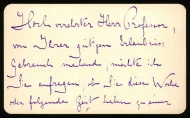 Hoch verehrter Herr Professor,
von Ihrer gütigen Erlaubnis
Gebrauch machend, möchte ich
Sie anfragen, ob Sie diese Woche
oder folgende Zeit haben zu einer